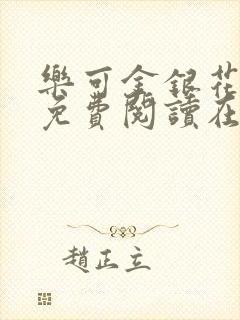 樂可金銀花
免費閱讀在
趙正立